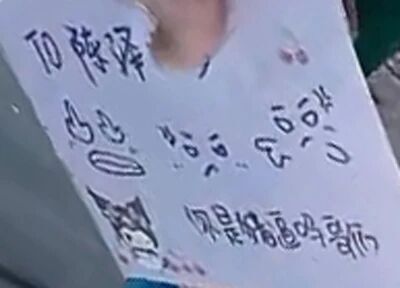 TO 陈泽
你是傻逼吗哥们